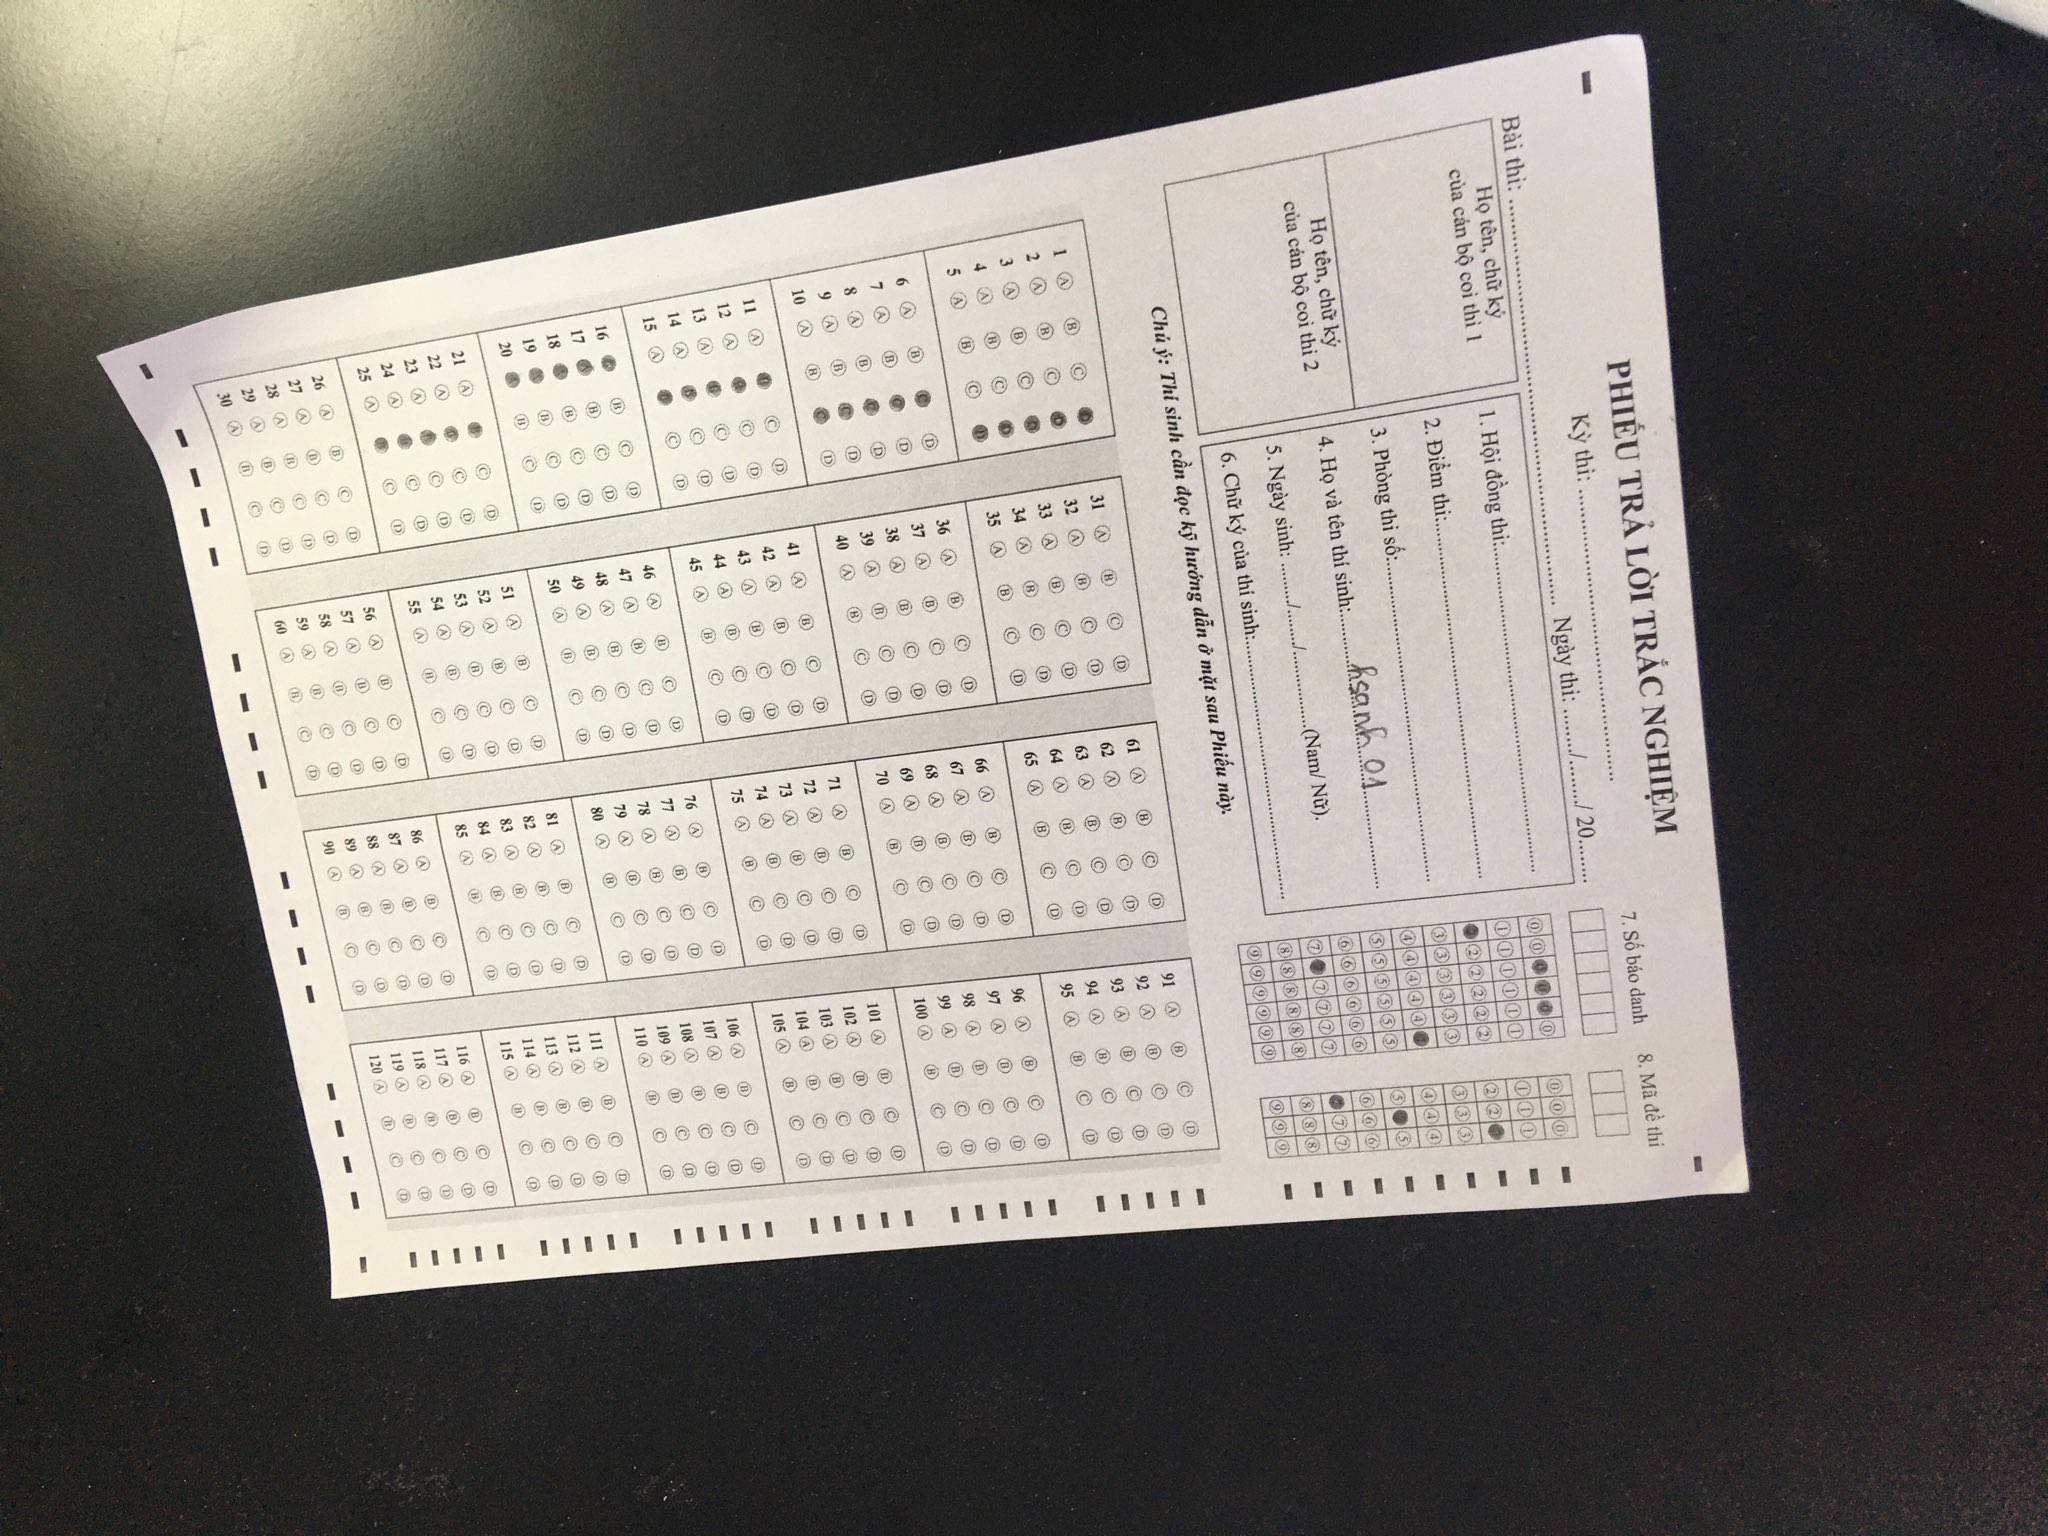 PHIẾU TRẢ LỜI TRẮC NGHIỆM
Kỳ thi: ................................................
Bài thi: ................................................................ Ngày thi: ......../......../ 20........
Họ tên, chữ ký
của cán bộ coi thi 1
Họ tên, chữ ký
của cán bộ coi thi 2
1. Hội đồng thi:................................................
2. Điểm thi:................................................
3. Phòng thi số:................................................
4. Họ và tên thí sinh:..........hsanh 01..........
5. Ngày sinh: ......../......../...............(Nam/ Nữ).
6. Chữ ký của thí sinh:................................................
7. Số báo danh
0 0 0 0 0 0
1 1 1 1 1 1
2 2 2 2 2 2
3 3 3 3 3 3
4 4 4 4 4 4
5 5 5 5 5 5
6 6 6 6 6 6
7 7 7 7 7 7
8 8 8 8 8 8
9 9 9 9 9 9
8. Mã đề thi
0 0 0
1 1 1
2 2 2
3 3 3
4 4 4
5 5 5
6 6 6
7 7 7
8 8 8
9 9 9
Chú ý: Thí sinh cần đọc kỹ hướng dẫn ở mặt sau Phiếu này.
1 A B C D
2 A B C D
3 A B C D
4 A B C D
5 A B C D
6 A B C D
7 A B C D
8 A B C D
9 A B C D
10 A B C D
11 A B C D
12 A B C D
13 A B C D
14 A B C D
15 A B C D
16 A B C D
17 A B C D
18 A B C D
19 A B C D
20 A B C D
21 A B C D
22 A B C D
23 A B C D
24 A B C D
25 A B C D
26 A B C D
27 A B C D
28 A B C D
29 A B C D
30 A B C D
31 A B C D
32 A B C D
33 A B C D
34 A B C D
35 A B C D
36 A B C D
37 A B C D
38 A B C D
39 A B C D
40 A B C D
41 A B C D
42 A B C D
43 A B C D
44 A B C D
45 A B C D
46 A B C D
47 A B C D
48 A B C D
49 A B C D
50 A B C D
51 A B C D
52 A B C D
53 A B C D
54 A B C D
55 A B C D
56 A B C D
57 A B C D
58 A B C D
59 A B C D
60 A B C D
61 A B C D
62 A B C D
63 A B C D
64 A B C D
65 A B C D
66 A B C D
67 A B C D
68 A B C D
69 A B C D
70 A B C D
71 A B C D
72 A B C D
73 A B C D
74 A B C D
75 A B C D
76 A B C D
77 A B C D
78 A B C D
79 A B C D
80 A B C D
81 A B C D
82 A B C D
83 A B C D
84 A B C D
85 A B C D
86 A B C D
87 A B C D
88 A B C D
89 A B C D
90 A B C D
91 A B C D
92 A B C D
93 A B C D
94 A B C D
95 A B C D
96 A B C D
97 A B C D
98 A B C D
99 A B C D
100 A B C D
101 A B C D
102 A B C D
103 A B C D
104 A B C D
105 A B C D
106 A B C D
107 A B C D
108 A B C D
109 A B C D
110 A B C D
111 A B C D
112 A B C D
113 A B C D
114 A B C D
115 A B C D
116 A B C D
117 A B C D
118 A B C D
119 A B C D
120 A B C D